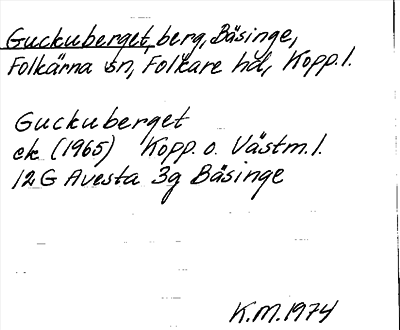 Guckuberget, berg, Bäsinge,
Folkärna sn, Folkare hd, Kopp. l.
Guckuberget
ek (1965) Kopp. o. Västm. l.
12G Avesta 3g Bäsinge
K.M. 1974